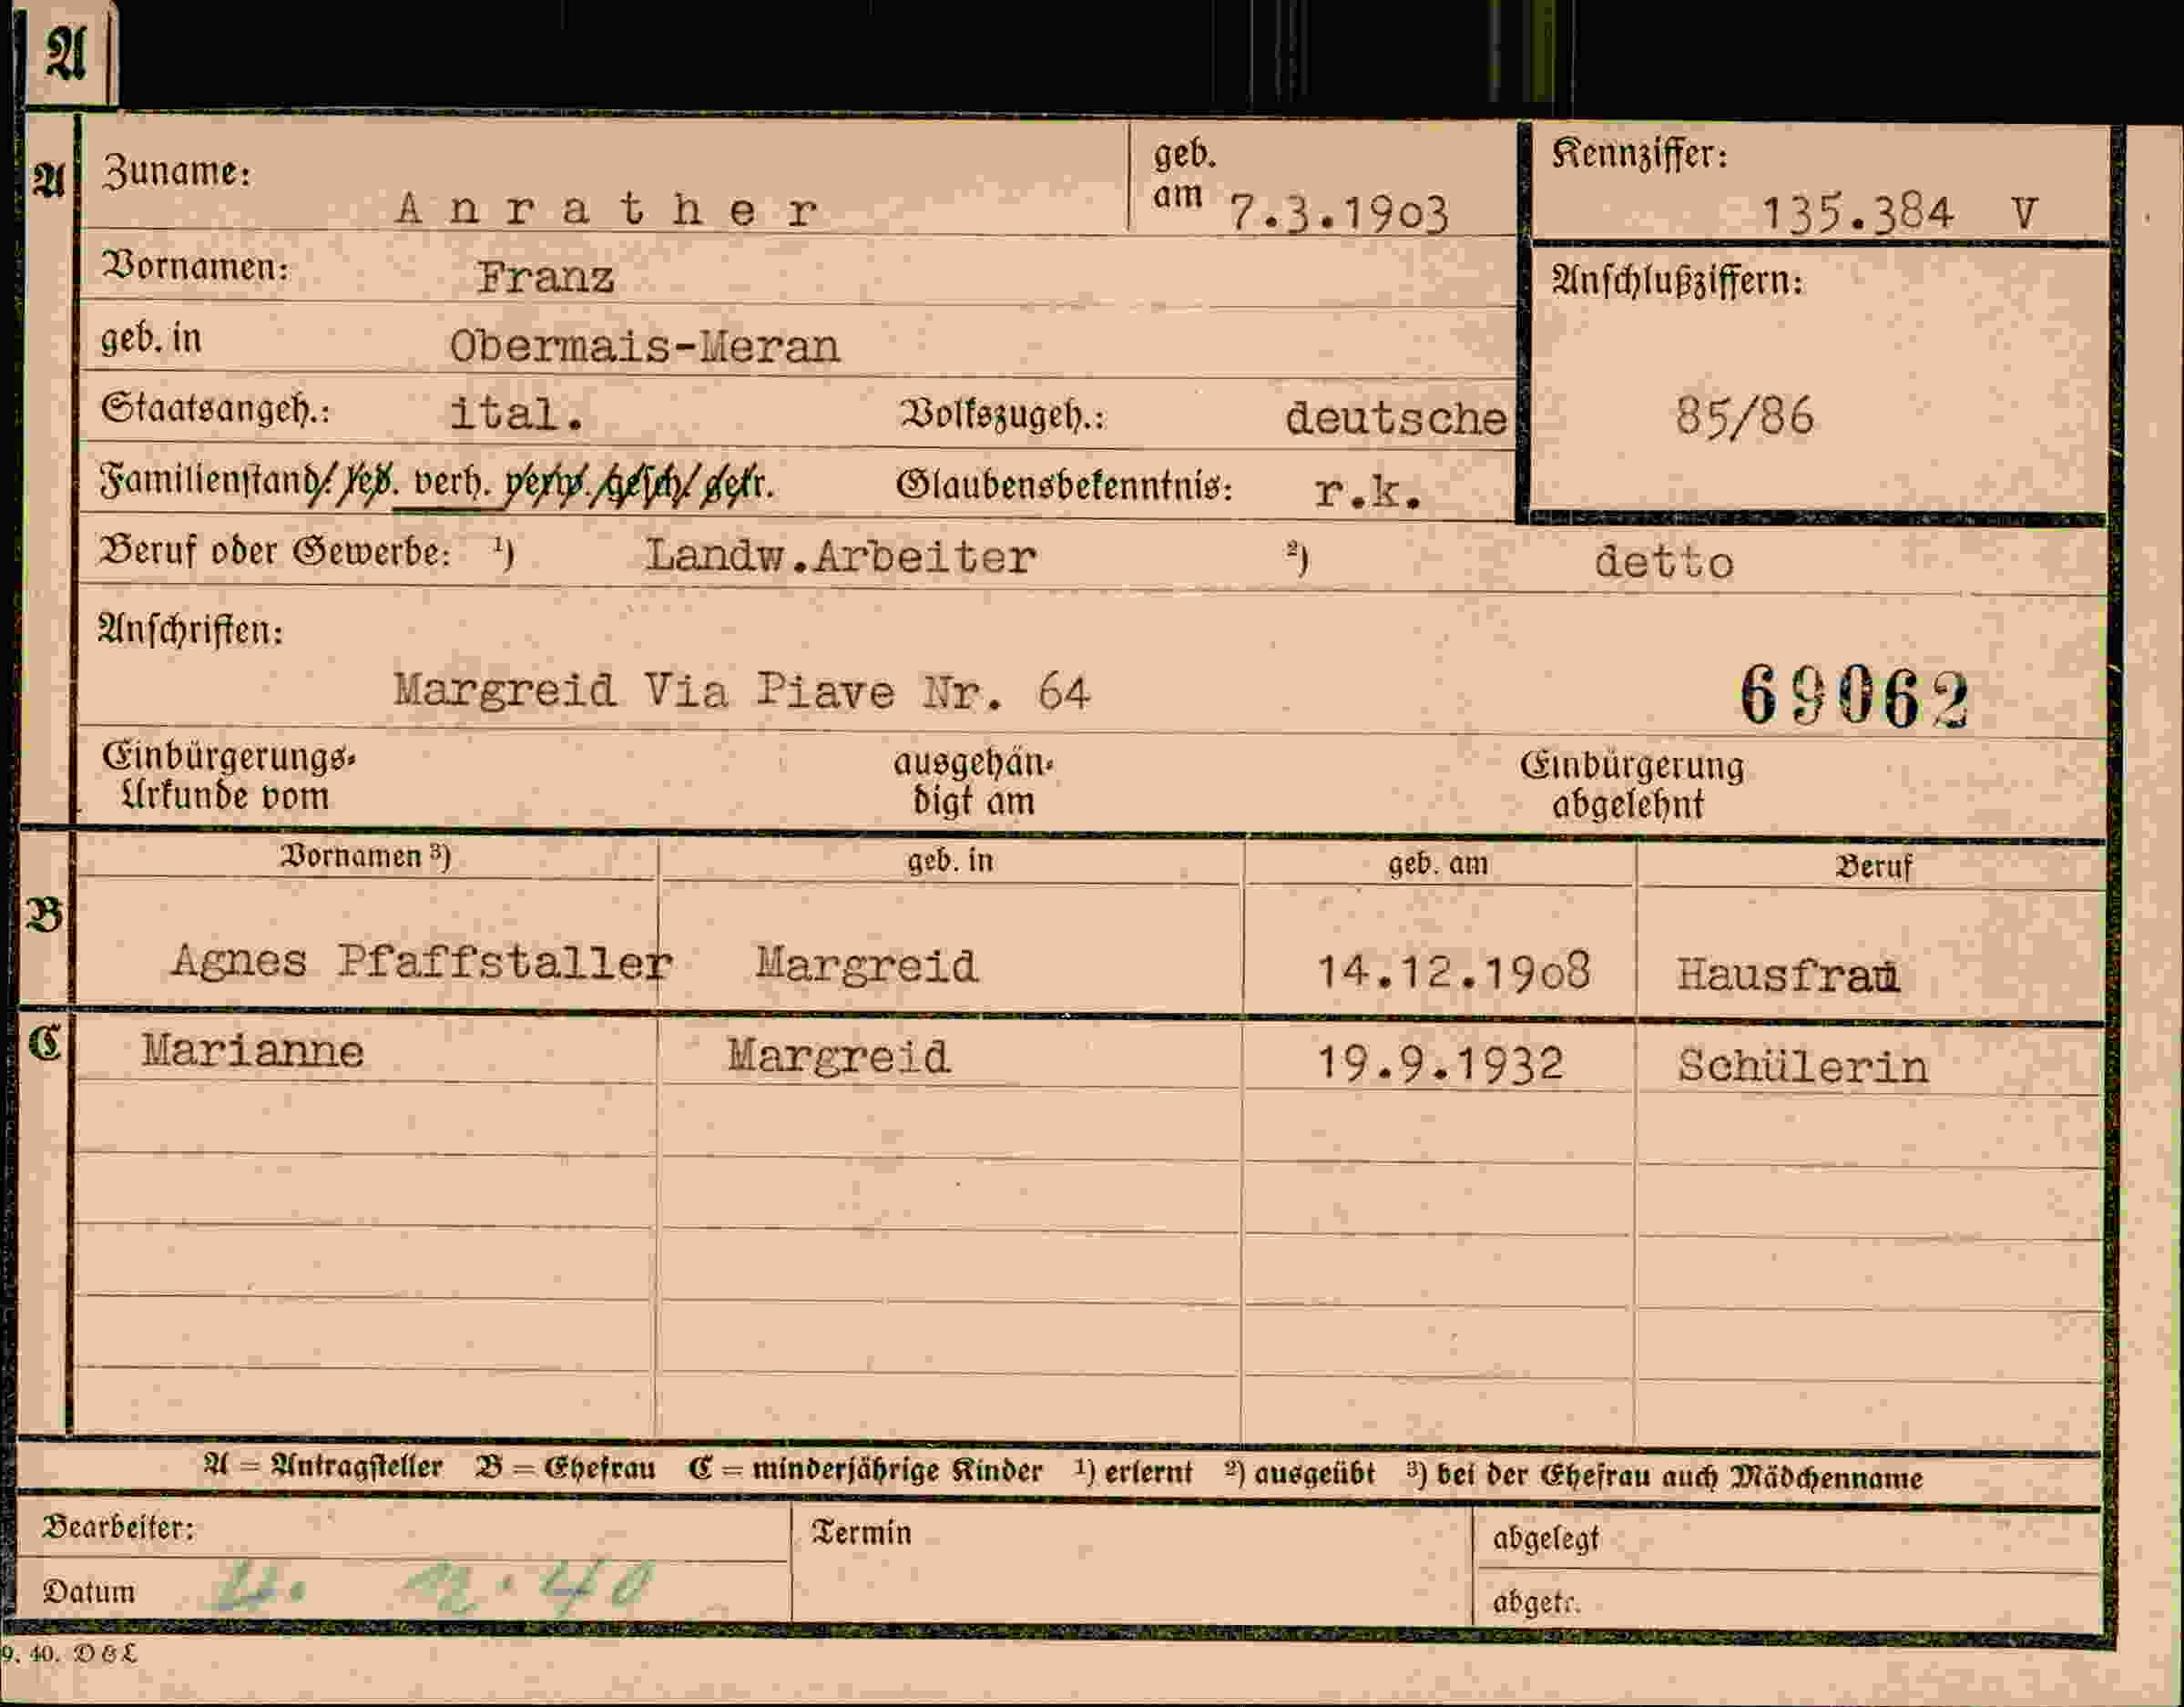 A
A
Zuname: Anrather geb. am 7.3.1903
Kennziffer: 135.384 V
Vornamen: Franz
Anschlußziffern:
geb. in Obermais-Meran
Staatsangeh.: ital. Volkszugeh.: deutsche
85/86
Familienstand: led. verh. verw. gesch. getr. Glaubensbekenntnis: r.k.
Beruf oder Gewerbe: ¹) Landw.Arbeiter ²) detto
Anschriften:
Margreid Via Piave Nr. 64
69062
Einbürgerungs-Urkunde vom ausgehändigt am Einbürgerung abgelehnt
Vornamen ³) geb. in geb. am Beruf
B
Agnes Pfaffstaller Margreid 14.12.1908 Hausfrau
C
Marianne Margreid 19.9.1932 Schülerin
A = Antragsteller B = Ehefrau C = minderjährige Kinder ¹) erlernt ²) ausgeübt ³) bei der Ehefrau auch Mädchenname
Bearbeiter: Termin abgelegt
Datum 40 abgetr.
9. 40. D & L